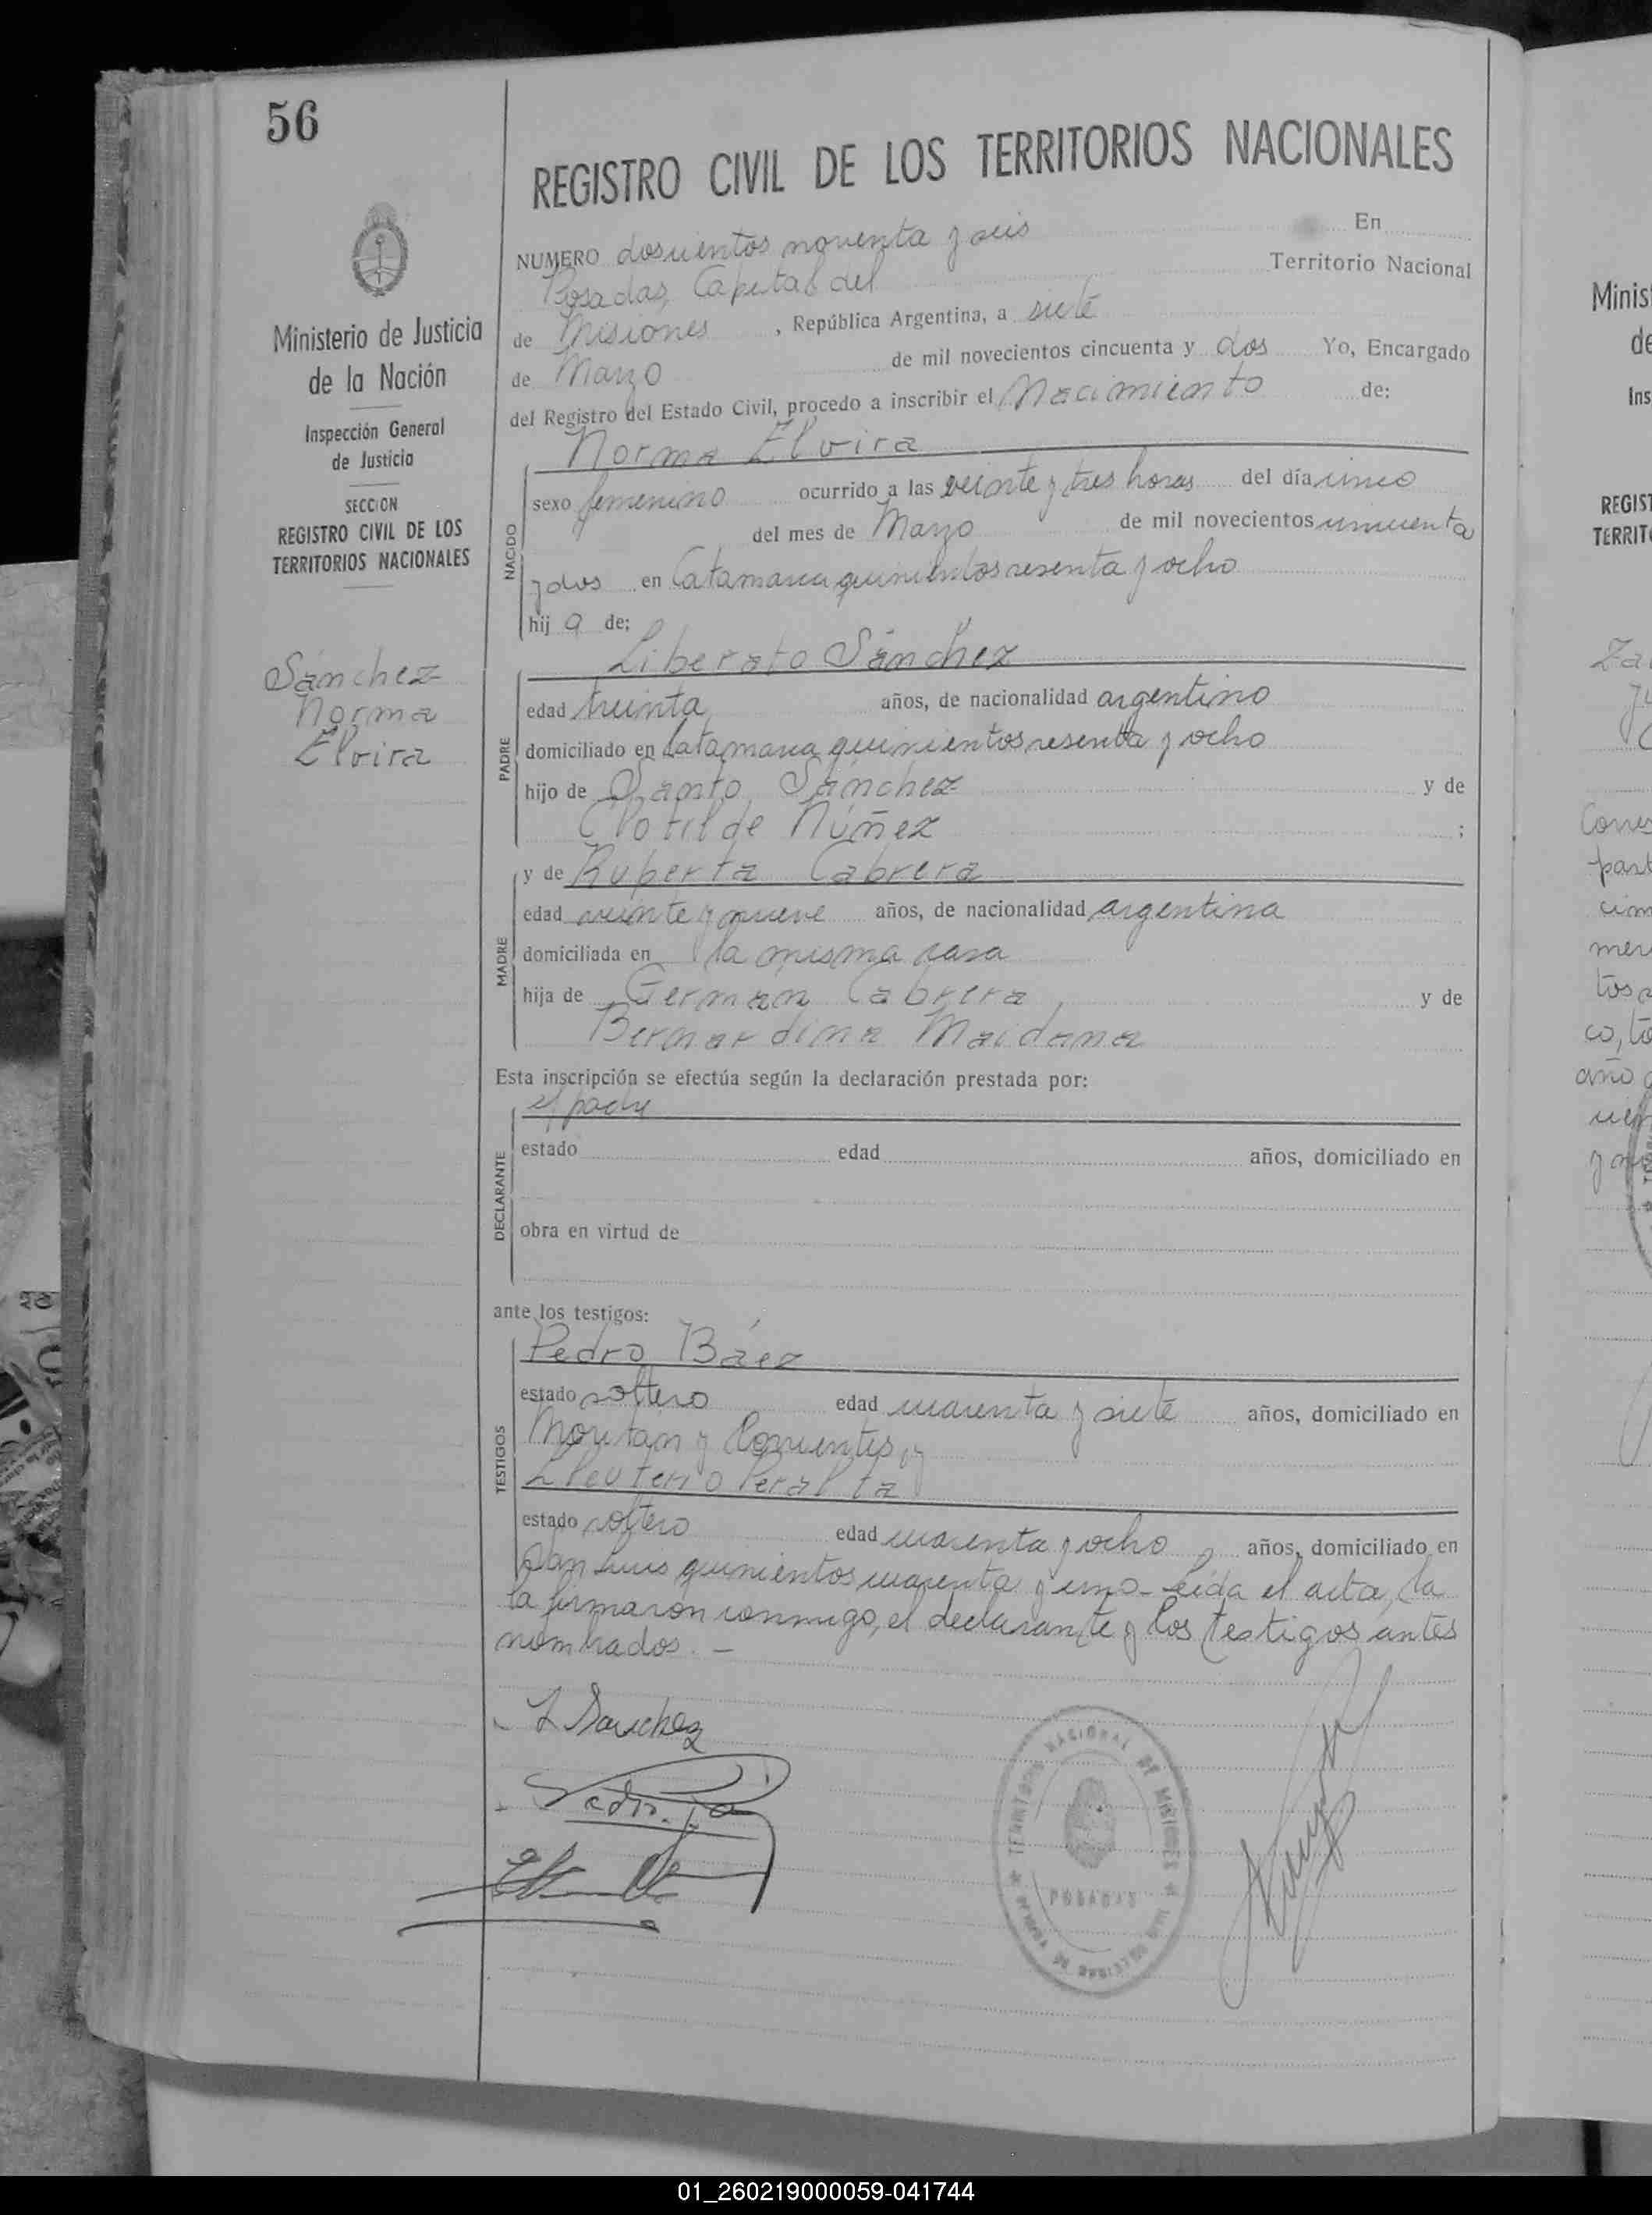 56
REGISTRO CIVIL DE LOS TERRITORIOS NACIONALES
NUMERO doscientos noventa y seis En
Posadas, Capital del Territorio Nacional
de Misiones, República Argentina, a siete
de Marzo de mil novecientos cincuenta y dos Yo, Encargado
del Registro del Estado Civil, procedo a inscribir el Nacimiento de:
Norma Elvira
NACIDO
sexo femenino ocurrido a las veinte y tres horas del día cinco
del mes de Marzo de mil novecientos cincuenta
y dos en Catamarca quinientos sesenta y ocho
hij a de:
Ministerio de Justicia
de la Nación
Inspección General
de Justicia
SECCION
REGISTRO CIVIL DE LOS
TERRITORIOS NACIONALES
Sánchez
Norma
Elvira
Liberato Sánchez
PADRE
edad treinta años, de nacionalidad argentino
domiciliado en Catamarca quinientos sesenta y ocho
hijo de Santo Sánchez y de
Clotilde Núñez ;
y de Ruperta Cabrera
MADRE
edad veinte y nueve años, de nacionalidad argentina
domiciliada en la misma casa
hija de German Cabrera y de
Bernardina Maidana
Esta inscripción se efectúa según la declaración prestada por:
el padre
DECLARANTE
estado edad años, domiciliado en
obra en virtud de
ante los testigos:
Pedro Báez
TESTIGOS
estado soltero edad cuarenta y siete años, domiciliado en
y Corrientes, y
Eleuterio Peralta
estado soltero edad cuarenta y ocho años, domiciliado en
San Luis quinientos cuarenta y uno - Leída el acta, la
la firmaron conmigo, el declarante y los testigos antes
nombrados. -
L Sanchez
TERRITORIO NACIONAL DE MISIONES
POSADAS
Minis
de
Ins
REGIST
TERRIT
01_260219000059-041744